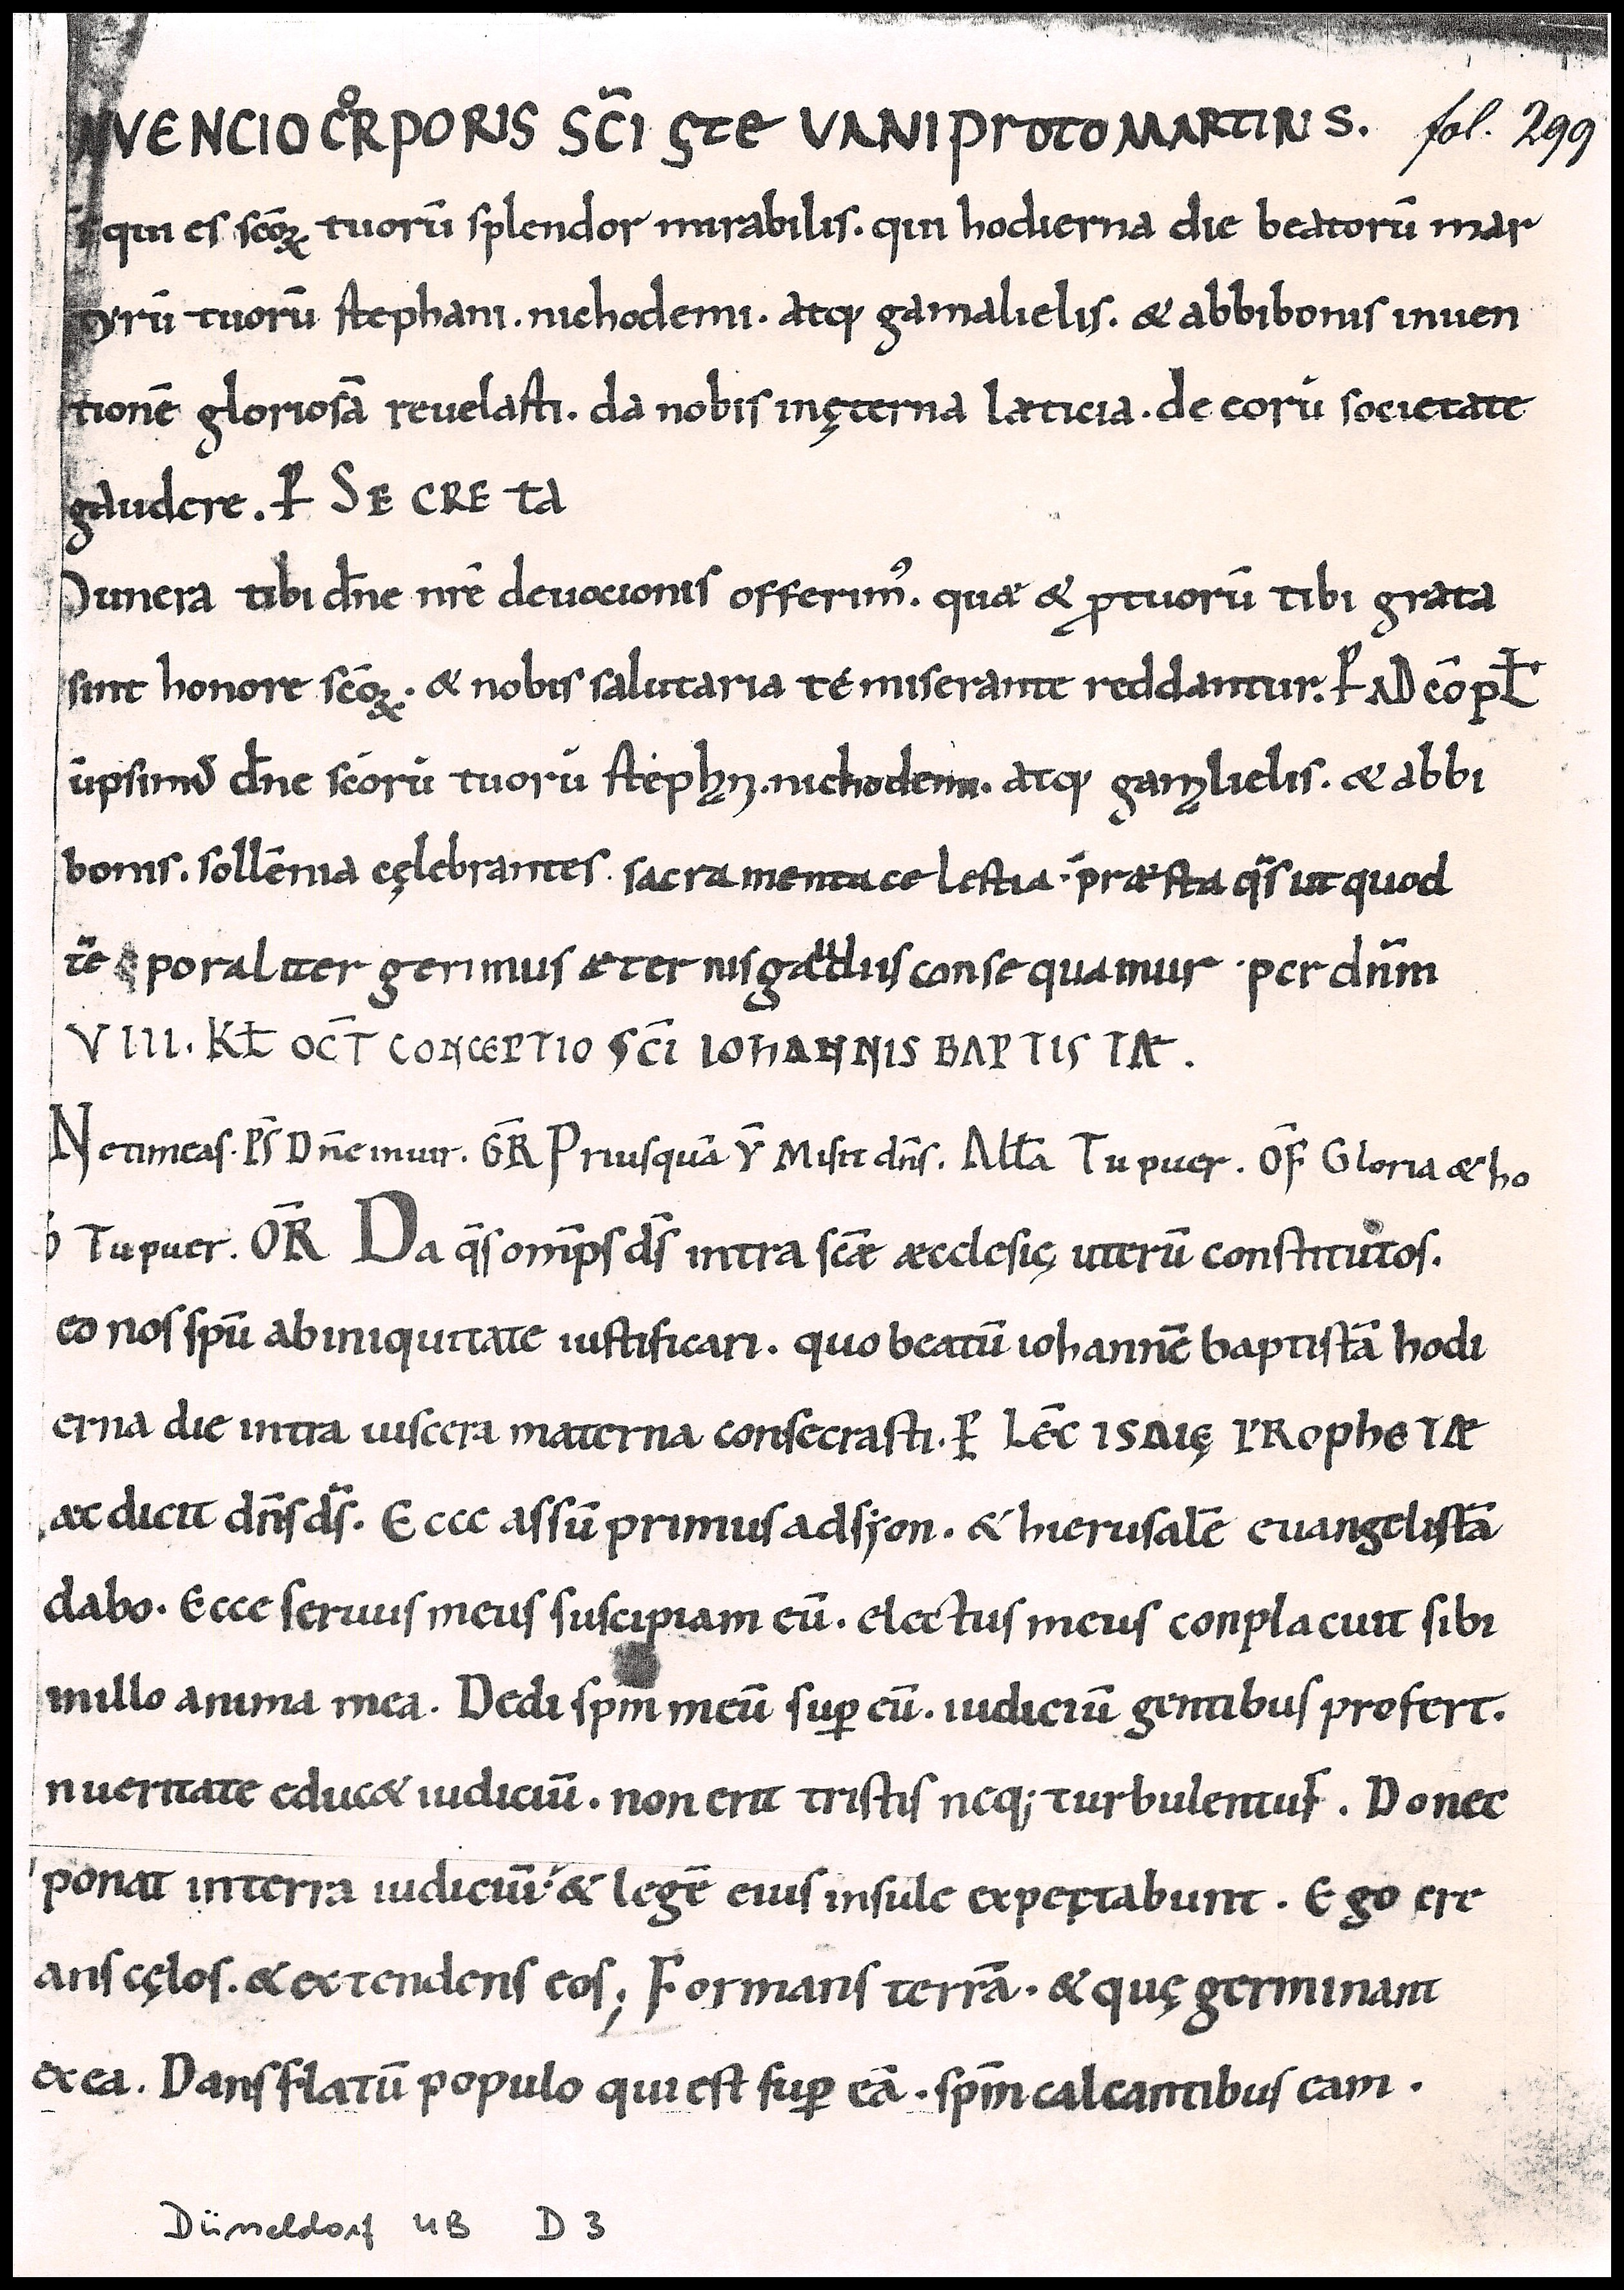 VENCIO CORPORIS SC̄I STEVANI PROTOMARTIRIS. fol. 299
qui es scōꝝ tuorū splendor mirabilis. qui hodierna die beatorū mar
yrū tuorū stephani. nichodemi. atq; gamalielis. & abbibonis inuen
tionē gloriosā reuelasti. da nobis inęterna læticia. de eorū societate
gaudere. P̵ SECRETA
unera tibi dn̄e nrē deuocionis offerimꝰ. quæ & ꝓtuorū tibi grata
sint honore scōꝝ. & nobis salutaria te miserante reddantur. P̵ AD CōPƚ
ūpsimꝰ dn̄e scōrū tuorū stephani. nichodemi. atq; gamalielis. & abbi
bonis. sollēnia cęlebrantes. sacramenta celestia. præsta qs̄ ut quod
tēporaliter gerimus æternis gaudiis consequamur. per dn̄m
VIII. Kƚ OCT̄ CONCEPTIO SC̄I IOHANNIS BAPTISTÆ.
Ne timeas. PS̄ Dn̄e in uir. GR̄ Priusquā V̄ Misit dn̄s. Allā Tu puer. OF̄ Gloria & ho
Tu puer. OR̄ Da qs̄ omp̄s ds̄ intra scǣ æcclesię uterū constitutos.
eo nos spū ab iniquitate iustificari. quo beatū iohannē baptistā hodi
erna die intra uiscera materna consecrasti. P̵ LEC̄ ISAIĘ PROPHETÆ
æc dicit dn̄s ds̄. Ecce assū primus ad syon. & hierusalē euangelistā
dabo. Ecce seruus meus suscipiam eū. electus meus conplacuit sibi
in illo anima mea. Dedi spm̄ meū suꝑ eū. iudiciū gentibus profert.
n ueritate educ& iudiciū. non erit tristis neq; turbulentus. Donec
ponat in terra iudiciū. & legē eius insule expęctabunt. Ego cre
ans cęlos. & extendens eos; Formans terrā. & quę germinant
ex ea. Dans flatū populo qui est suꝑ eā. spm̄ calcantibus eam.
Düsseldorf UB D 3